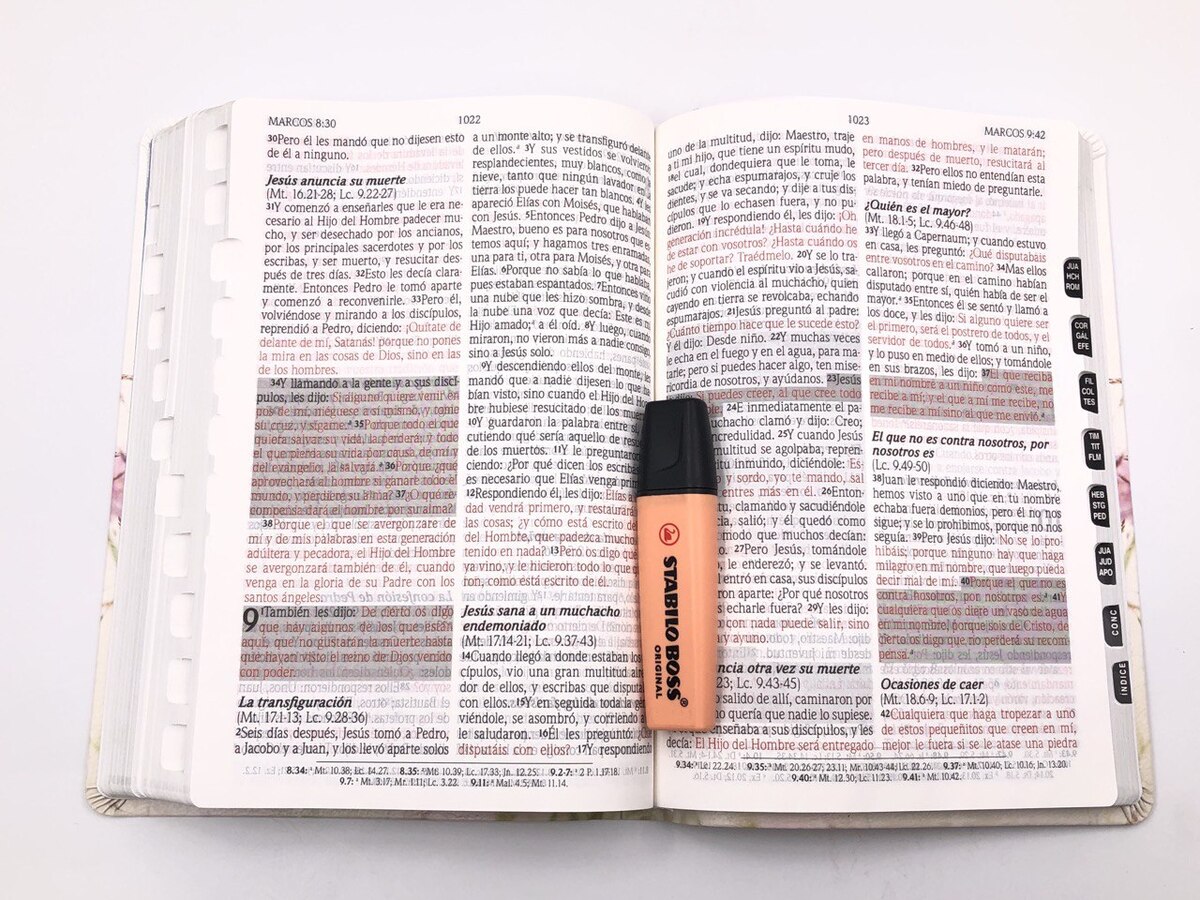 MARCOS 8:30
1022
30Pero él les mandó que no dijesen esto
de él a ninguno.
Jesús anuncia su muerte
(Mt. 16.21-28; Lc. 9.22-27)
31Y comenzó a enseñarles que le era ne-
cesario al Hijo del Hombre padecer mu-
cho, y ser desechado por los ancianos,
por los principales sacerdotes y por los
escribas, y ser muerto, y resucitar des-
pués de tres días. 32Esto les decía clara-
mente. Entonces Pedro le tomó aparte
y comenzó a reconvenirle. 33Pero él,
volviéndose y mirando a los discípulos,
reprendió a Pedro, diciendo: ¡Quítate de
delante de mí, Satanás! porque no pones
la mira en las cosas de Dios, sino en las
de los hombres.
34Y llamando a la gente y a sus discí-
pulos, les dijo: Si alguno quiere venir en
pos de mí, niéguese a sí mismo, y tome
su cruz, y sígame. 35Porque todo el que
quiera salvar su vida, la perderá; y todo
el que pierda su vida por causa de mí y
del evangelio, la salvará. 36Porque ¿qué
aprovechará al hombre si ganare todo el
mundo, y perdiere su alma? 37¿O qué re-
compensa dará el hombre por su alma?
38Porque el que se avergonzare de
mí y de mis palabras en esta generación
adúltera y pecadora, el Hijo del Hombre
se avergonzará también de él, cuando
venga en la gloria de su Padre con los
santos ángeles.
9 1También les dijo: De cierto os digo
que hay algunos de los que están
aquí, que no gustarán la muerte hasta
que hayan visto el reino de Dios venido
con poder.
La transfiguración
(Mt. 17.1-13; Lc. 9.28-36)
2Seis días después, Jesús tomó a Pedro,
a Jacobo y a Juan, y los llevó aparte solos
a un monte alto; y se transfiguró delante
de ellos. 3Y sus vestidos se volvieron
resplandecientes, muy blancos, como la
nieve, tanto que ningún lavador en la
tierra los puede hacer tan blancos. 4Y les
apareció Elías con Moisés, que hablaban
con Jesús. 5Entonces Pedro dijo a Jesús:
Maestro, bueno es para nosotros que es-
temos aquí; y hagamos tres enramadas,
una para ti, otra para Moisés, y otra para
Elías. 6Porque no sabía lo que hablaba,
pues estaban espantados. 7Entonces vino
una nube que les hizo sombra, y desde
la nube una voz que decía: Este es mi
Hijo amado; a él oíd. 8Y luego, cuando
miraron, no vieron más a nadie consigo,
sino a Jesús solo.
9Y descendiendo ellos del monte, les
mandó que a nadie dijesen lo que ha-
bían visto, sino cuando el Hijo del Hom-
bre hubiese resucitado de los muer
10Y guardaron la palabra entre sí,
cutiendo qué sería aquello de resu
de los muertos. 11Y le preguntaron
ciendo: ¿Por qué dicen los escrib
es necesario que Elías venga prim
12Respondiendo él, les dijo: Elías a
dad vendrá primero, y restaurará
las cosas; ¿y cómo está escrito del
Hombre, que padezca mucho
tenido en nada? 13Pero os digo qu
ya vino, y le hicieron todo lo que
ron, como está escrito de él.
Jesús sana a un muchacho
endemoniado
(Mt. 17.14-21; Lc. 9.37-43)
14Cuando llegó a donde estaban los
cípulos, vio una gran multitud al
dor de ellos, y escribas que disputa
con ellos. 15Y en seguida toda la ge
viéndole, se asombró, y corriendo a
le saludaron. 16Él les preguntó: ¿Q
disputáis con ellos? 17Y respondiendo
8.34: Mt. 10.38; Lc. 14.27. 8.35: Mt. 10.39; Lc. 17.33; Jn. 12.25. 9.2-7: 2 P. 1.17-18.
9.7: Mt. 3.17; Mr. 1.11; Lc. 3.22. 9.11: Mal. 4.5; Mt. 11.14.
1023
MARCOS 9:42
uno de la multitud, dijo: Maestro, traje
a ti mi hijo, que tiene un espíritu mudo,
el cual, dondequiera que le toma, le
sacude; y echa espumarajos, y cruje los
dientes, y se va secando; y dije a tus dis-
cípulos que lo echasen fuera, y no pu-
dieron. 19Y respondiendo él, les dijo: ¡Oh
generación incrédula! ¿Hasta cuándo he
de estar con vosotros? ¿Hasta cuándo os
he de soportar? Traédmelo. 20Y se lo tra-
jeron; y cuando el espíritu vio a Jesús, sa-
cudió con violencia al muchacho, quien
cayendo en tierra se revolcaba, echando
espumarajos. 21Jesús preguntó al padre:
¿Cuánto tiempo hace que le sucede esto?
Y él dijo: Desde niño. 22Y muchas veces
le echa en el fuego y en el agua, para ma-
tarle; pero si puedes hacer algo, ten mise-
ricordia de nosotros, y ayúdanos. 23Jesús
si puedes creer, al que cree todo
24E inmediatamente el pa-
muchacho clamó y dijo: Creo;
ncredulidad. 25Y cuando Jesús
multitud se agolpaba, repren-
ritu inmundo, diciéndole: Es-
y sordo, yo te mando, sal
entres más en él. 26Enton-
clamando y sacudiéndole
salió; y él quedó como
modo que muchos decían:
27Pero Jesús, tomándole
le enderezó; y se levantó.
entró en casa, sus discípulos
on aparte: ¿Por qué nosotros
echarle fuera? 29Y les dijo:
con nada puede salir, sino
y ayuno.
ncia otra vez su muerte
23; Lc. 9.43-45)
salido de allí, caminaron por
no quería que nadie lo supiese.
enseñaba a sus discípulos, y les
decía: El Hijo del Hombre será entregado
en manos de hombres, y le matarán;
pero después de muerto, resucitará al
tercer día. 32Pero ellos no entendían esta
palabra, y tenían miedo de preguntarle.
¿Quién es el mayor?
(Mt. 18.1-5; Lc. 9.46-48)
33Y llegó a Capernaum; y cuando estuvo
en casa, les preguntó: ¿Qué disputabais
entre vosotros en el camino? 34Mas ellos
callaron; porque en el camino habían
disputado entre sí, quién había de ser el
mayor. 35Entonces él se sentó y llamó a
los doce, y les dijo: Si alguno quiere ser
el primero, será el postrero de todos, y el
servidor de todos. 36Y tomó a un niño,
y lo puso en medio de ellos; y tomándole
en sus brazos, les dijo: 37El que reciba
en mi nombre a un niño como este, me
recibe a mí; y el que a mí me recibe, no
me recibe a mí sino al que me envió.
El que no es contra nosotros, por
nosotros es
(Lc. 9.49-50)
38Juan le respondió diciendo: Maestro,
hemos visto a uno que en tu nombre
echaba fuera demonios, pero él no nos
sigue; y se lo prohibimos, porque no nos
seguía. 39Pero Jesús dijo: No se lo pro-
hibáis; porque ninguno hay que haga
milagro en mi nombre, que luego pueda
decir mal de mí. 40Porque el que no es
contra nosotros, por nosotros es. 41Y
cualquiera que os diere un vaso de agua
en mi nombre, porque sois de Cristo, de
cierto os digo que no perderá su recom-
pensa.
Ocasiones de caer
(Mt. 18.6-9; Lc. 17.1-2)
42Cualquiera que haga tropezar a uno
de estos pequeñitos que creen en mí,
mejor le fuera si se le atase en una piedra
9.34: Lc. 22.24. 9.35: Mt. 20.26-27; 23.11; Mr. 10.43-44; Lc. 22.26. 9.37: Mt. 10.40; Lc. 10.16; Jn. 13.20.
9.40: Mt. 12.30; Lc. 11.23. 9.41: Mt. 10.42.
STABILO BOSS
ORIGINAL
JUA
HCH
ROM
COR
GÁL
EFE
FIL
COL
TES
TIM
TIT
FLM
HEB
STG
PED
JUA
JUD
APO
CONC
ÍNDICE